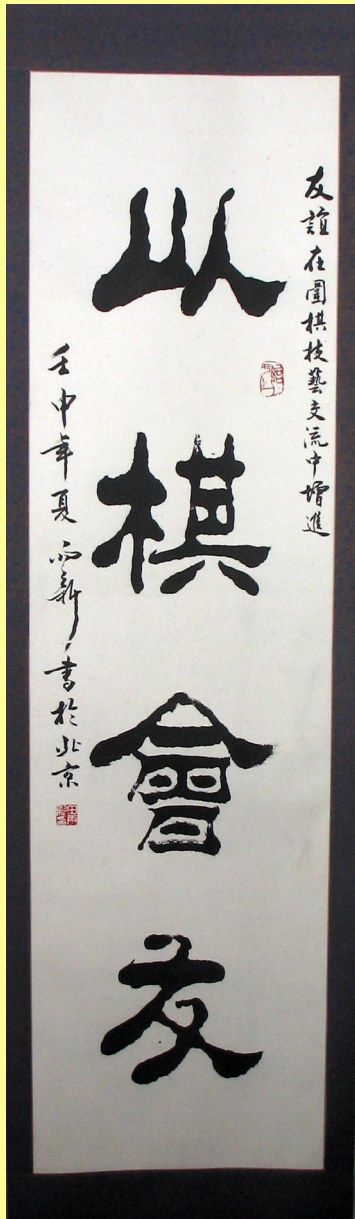 友誼在圍棋技藝交流中增進
以棋會友
壬申年夏雨新書於北京